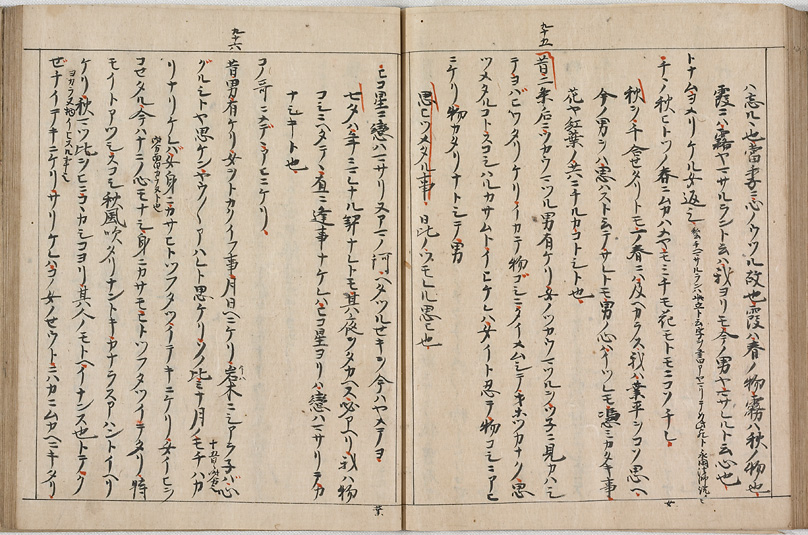 九十五
ハ志ルヘ也當妻ニ心ノウツル故也霞ハ春ノ物霧ハ秋ノ物也
霞ニハ霧ヤマサルラント云ハ我ヨリモ今ノ男ヤマサレルト云心也
トナムヨメリケル女返シ
千ヽノ秋ヒトツノ春ニムカハメヤモミチモ花モトモニコソチレ
秋ヲ千合セタリトモ一ノ春ニ及ヘカラス我ハ業平ヲコソ思ヘ
今ノ男ヲハ思ハスト云テサレトモ男ノ心ハイツレモ憑ミカタキ事
花ヤ紅葉ノ共ニチルカコトシト也
昔二条后ニツカウマツル男有ケリ女ノツカウマツルヲツ子ニ見カハシ
テヨハヒワタリケリイカテ物コシニタイメムシテオホツカナク思
ツメタルコトスコシハルカサムトイヒケレハ女イト忍テ物コシニアヒ
ニケリ物カタリナトシテ男
思ヒツメタル事 日比ノツモレル思ヒ也
九十六
ヒコ星ニ戀ハマサリヌアマノ河ヘタツルセキヲ今ハヤメテヨ
七夕ハ年ニ契ナレトモ其夜ヲタカヘス必アヘリ我ハ物
コシニヘタテヽ直ニ逢事ナケレハヒコ星ヨリハ戀ハマサリテカ
ナシキト也
コノ哥ニメテヽアヒニケリ
昔男有ケリ女ヲトカクイフ事月日ヘニケリ岩木ニシアラ子ハ心
グルシトヤ思ケンヤウ〱アハレト思ケリソノ比ミナ月ノモチハカ
リナリケレハ女身ニカサヒトツフタツイテキニケリ女イヒヲ
コセタル今ハナニノ心モナシ身ニカサモヒトツフタツイテタリ時
モイトアツシスコシ秋風吹タチナントキカナラスアハントイヘリ
ケリ秋マツ比ヲヒニコヽカシコヨリ其人ノモトヘイナンス也トテク
ゼチイテキニケリサリケレハコノ女ノセウトニハカニムカヘニキタリ